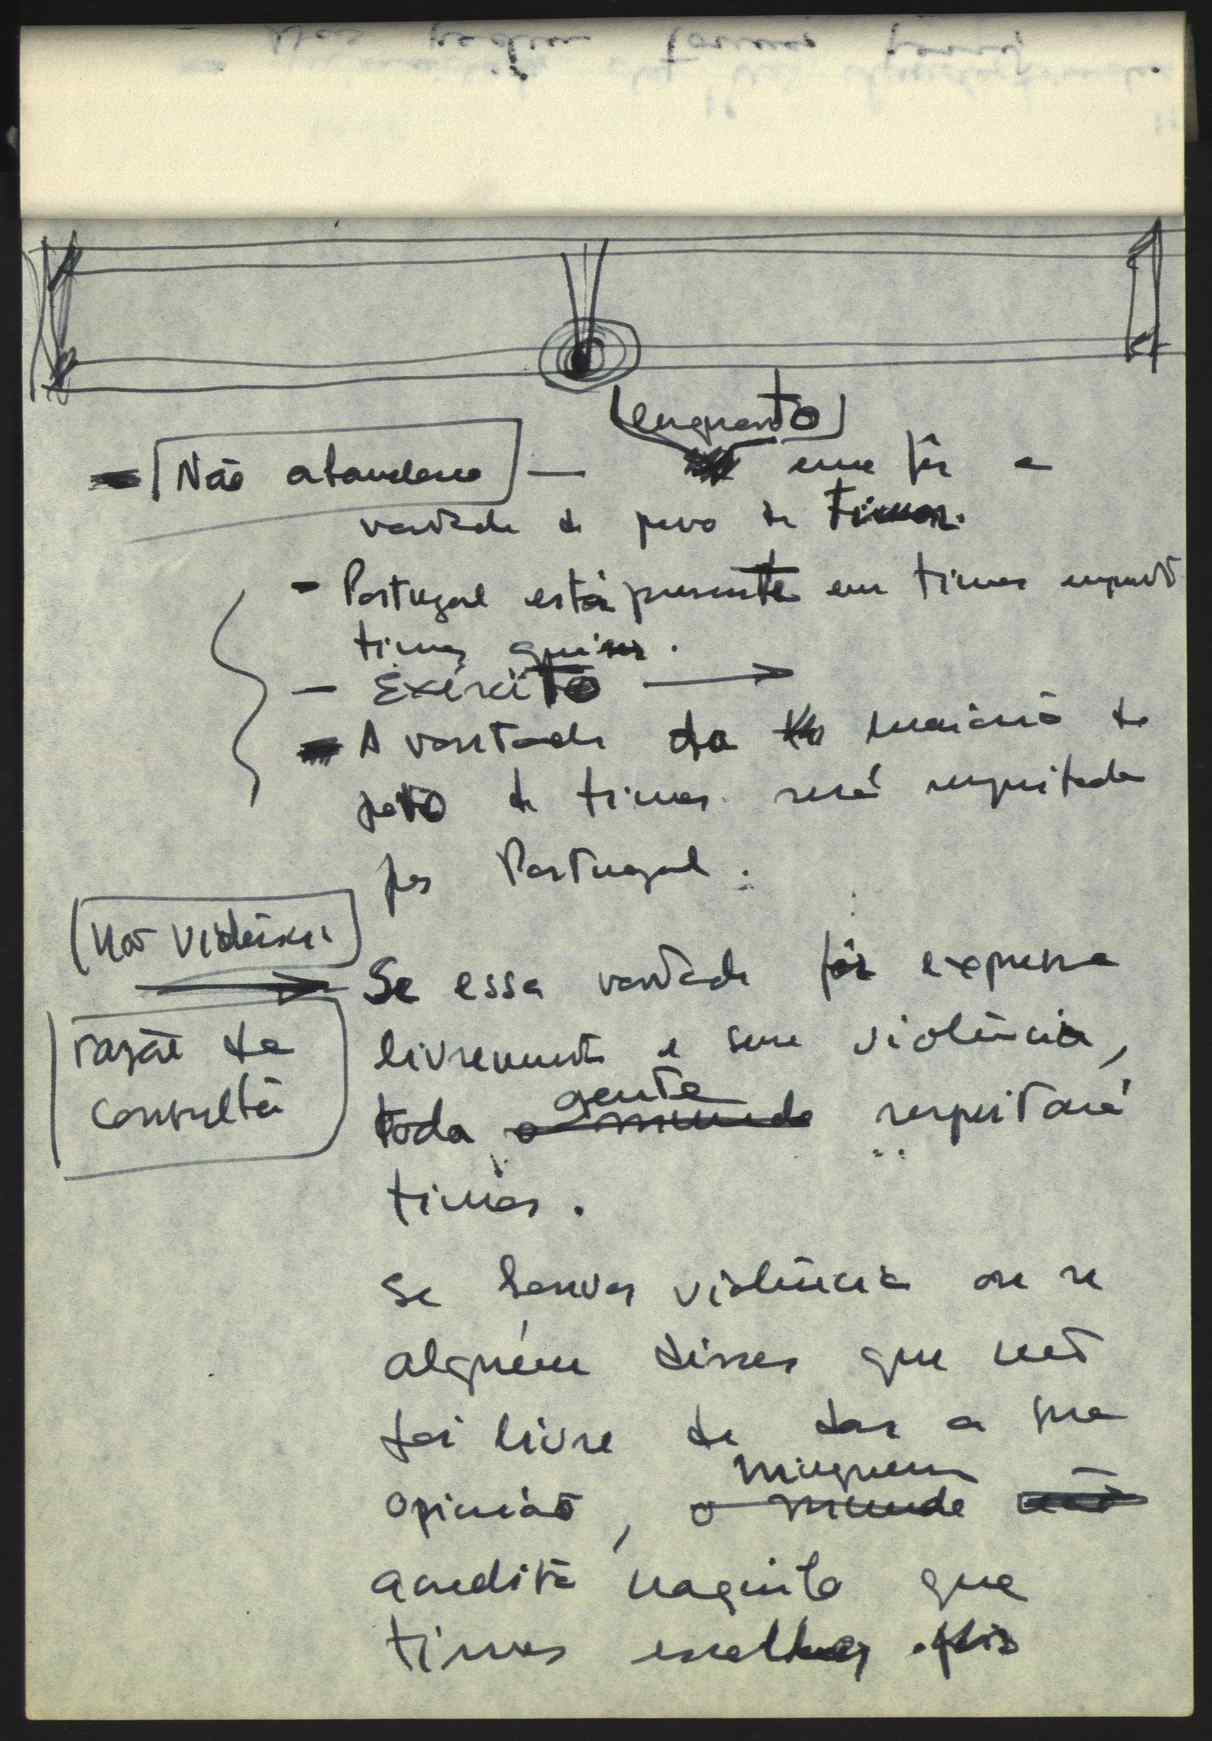 (enquanto)
- Não abandono - essa fôr a
vontade do povo de Timor.
- Portugal está presente em Timor enquanto
Timor quiser.
- Exército →
- A vontade da maioria do
povo de Timor será respeitada
por Portugal.
Não violência
Se essa vontade fôr expressa
razão da
livremente e sem violência,
consulta
gente
toda o mundo respeitará
Timor.
Se houver violência ou se
alguém disser que não
foi livre de dar a sua
ninguem
opinião, o mundo não
acredita naquilo que
Timor escolher